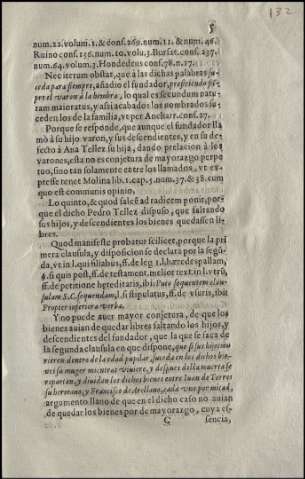 132
5
num. 22. volum. 1. & cons. 269. num. 11. & num. 46.
Ruino cons. 156. num. 10. volu. 3. Bursat. cons. 237.
num. 64. volum. 3. Hondedeus cons. 78. n. 17.
Nec iterum obstat, que à las dichas palabras suceda para siempre, añadio el fundador, prefiriendo siempre el varon à la hembra, lo qual es secundum naturam maioratus, y assi acabados los nombrados suceden los de la familia, vt per Ancharr. cons. 17.
Porque se responde, que aunque el fundador llamò à su hijo varon, y sus descendientes, y en su defecto à Ana Tellez su hija, dando prelacion à los varones, esta no es conjetura de mayorazgo perpetuo, sino tan solamente entre los llamados, vt expresse tenet Molina lib. 1. cap. 5. num. 37. & 38. cum quo est communis opinio.
Lo quinto, & quod salem ad radicem ponit, porque el dicho Pedro Tellez dispuso, que faltando sus hijos, y descendientes los bienes quedassen libres.
Quod manifeste probatur scilicet, porque la primera clausula, y disposicion se declara por la segunda, vt in l. qui filiabus, ff. de leg. 1. l. hæredes pallam, §. si quis post, ff. de testament. melior text. in l. vtrũ, ff. de petitione hæreditatis, ibi: Puto sequentem clausulam S. C. sequendam, l. si stipulatus, ff. de vsuris, ibi: Propter inferiora verba.
Y no puede auer mayor conjetura, de que los bienes auian de quedar libres faltando los hijos, y descendientes del fundador, que la que se saca de la segunda clausula en que dispone, que si sus hijos murieren dentro de la edad pupilar, suceda en los dichos bienes su muger mientras viuiere, y despues della muerta se repartan, y diuidan los dichos bienes entre Iuan de Torres su hermano, y Francisco de Arellano, cada vno por mitad, argumento llano de que en el dicho caso no auian de quedar los bienes por de mayorazgo, cuya es-
C sencia,